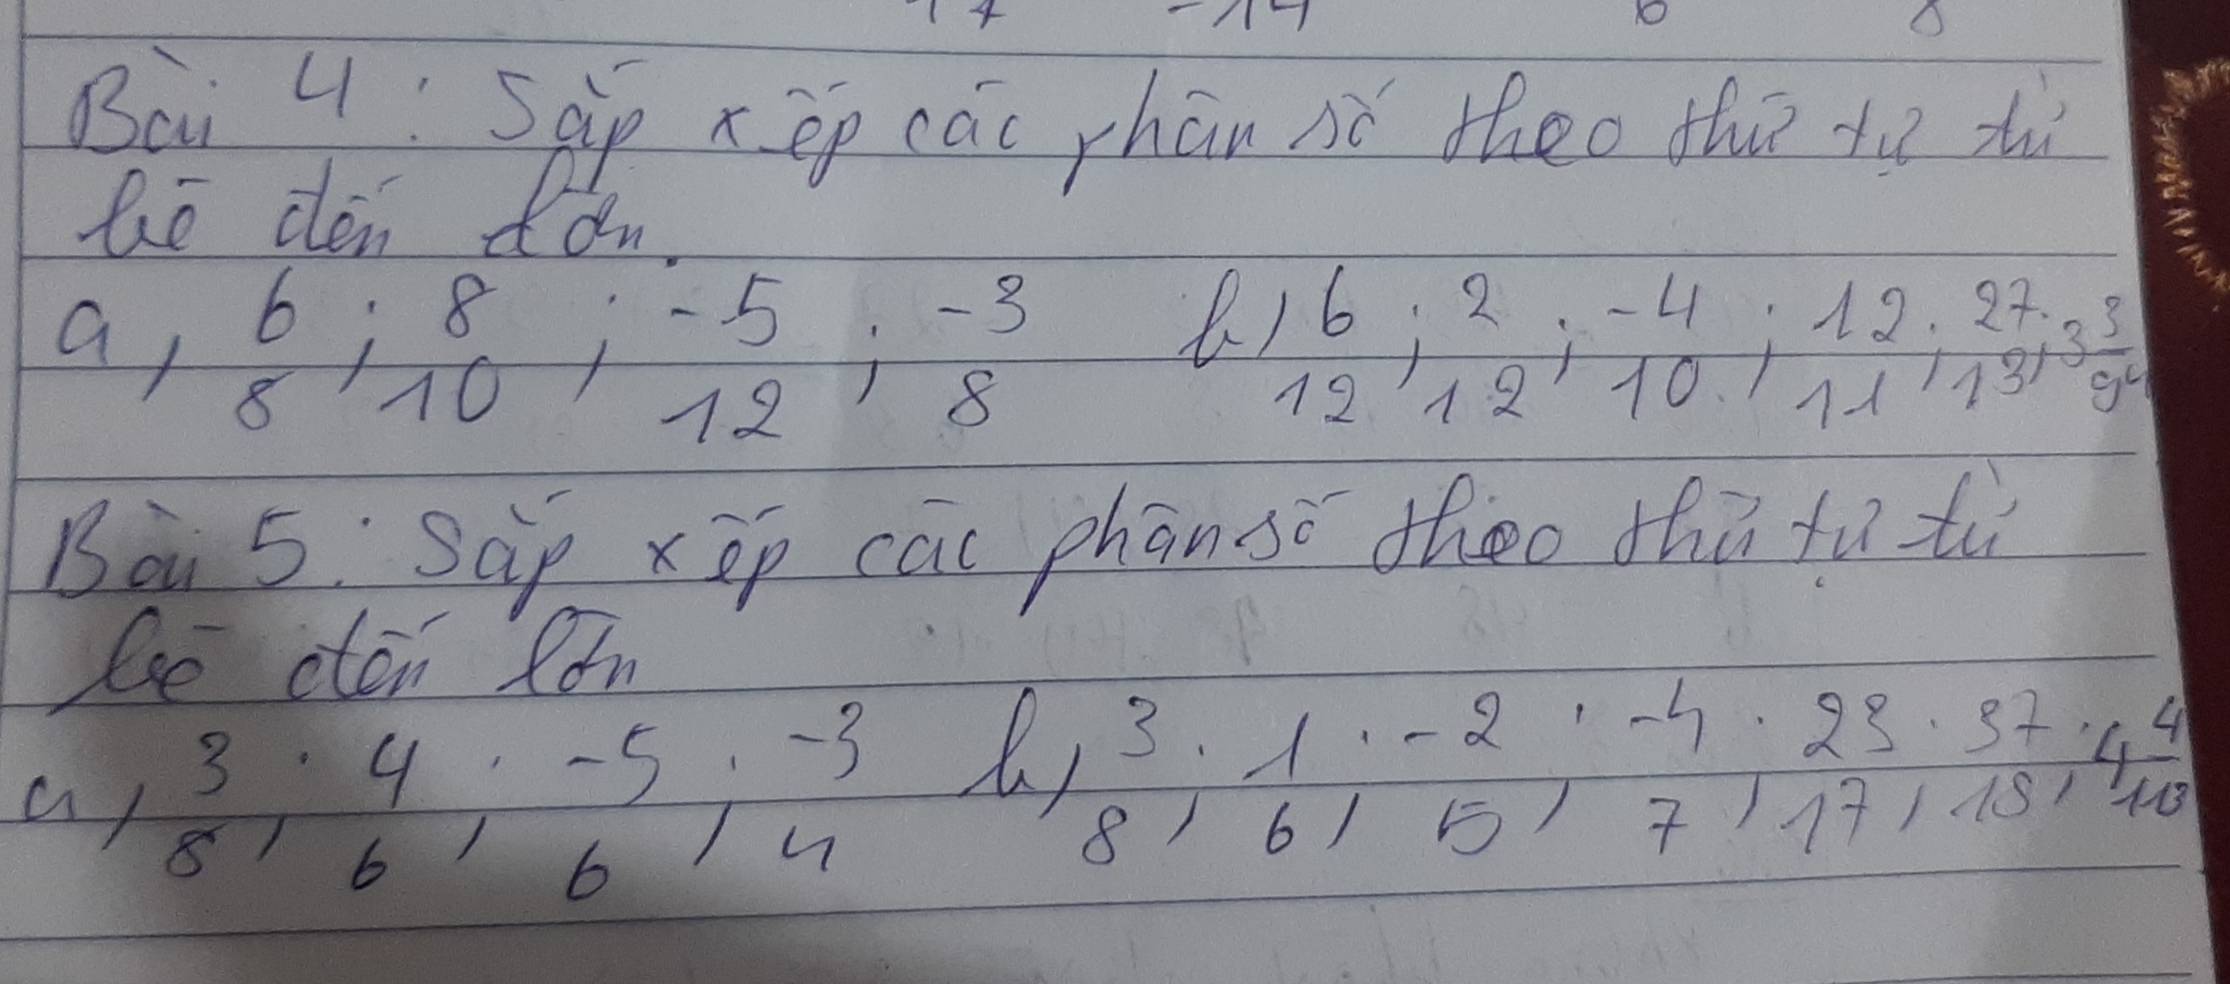 Bài 4: Sắp xếp các phân số theo thứ tự từ
bé đến lớn.
a, 6/8; 8/10; -5/12; -3/8 b) 6/12; 2/12; -4/10; 12/11; 27/13; 3 3/94
Bài 5: Sắp xếp các phân số theo thứ tự từ
bé đến lớn
a, 3/8; 4/6; -5/6; -3/4 b, 3/8; 1/6; -2/5; -4/7; 23/17; 37/18; 4 4/113